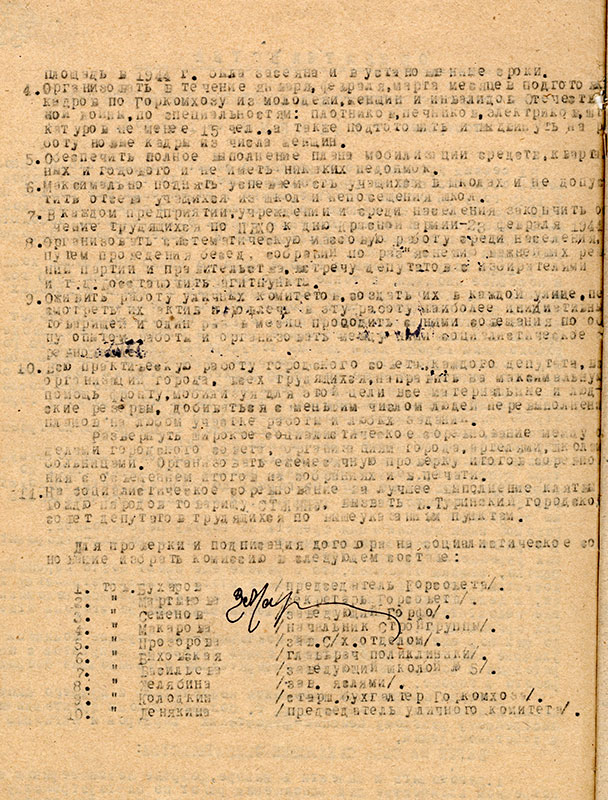 площадь в 1944 г. была засеяна и в установленные сроки.
4. Организовать в течение января, февраля, марта месяцев подгото
кадров по Горкомхозу из молодежи, женщин и инвалидов Отечест
ной войны, по специальностям: плотников, печников, электриков, шт
катуров не менее 15 чел., а также подготовить и выдвинуть на
боту новые кадры из числа женщин.
5. Обеспечить полное выполнение плана мобилизации средств, кварта
ных и годового и не иметь никаких недоимок.
6. Максимально поднять успеваемость учащихся в школах и не допус
тить отсева учащихся из школ и непосещения школ.
7. В каждом предприятии, учреждении и среди населения закончить о
чение трудящихся по ПВХО к дню Красной армии-23 февраля 1944
8. Организовать систематическую массовую работу среди населения,
путем проведения бесед, собраний по раз'яснению важнейших реш
ний партии и правительства, встречу депутатов с избирателями
и т.д. восстановить агитпункты.
9. Оживить работу уличных комитетов, создать их в каждой улице, пе
смотреть их актив вовлечь в эту работу наиболее инициативны
товарищей и один раз в месяц проводить с ними совещания по об
ну опытом работы и организовать между ними социалистическое
ревнование.
10. Всю практическую работу городского совета, каждого депутата, в
организаций города, всех трудящихся, направить на максимальну
помощь фронту, мобилизуя для этой цели все материальные и люд
ские резервы, добиваться с меньшим числом людей перевыполнен
планов на любом участке работы и любых заданий.
Развернуть широкое социалистическое соревнование между о
делами городского совета, организациями города, артелями, школам
больницами. Организовать ежемесячную проверку итогов соревно
ния с освещением итогов на собраниях и в печати.
11. На социалистическое соревнование за лучшее выполнение клятвы
вождю народов товарищу Сталину, вызвать Туринский городско
совет депутатов трудящихся по вышеуказанным пунктам.
Для проверки и подписания договора на социалистическое со
нование избрать комиссию в следующем составе:
1. тов. Бухаров /председатель Горсовета/.
2. " Мартынова /секретарь Горсовета/.
3. " Семенов /заведующий ГорОО/.
4. " Макарова /начальник Стройгруппы/.
5. " Прозорова /зав.С/х.отделом/.
6. " Быховская /главврач поликлиники/.
7. " Васильева /заведующий школой № 5/.
8. " Телябина /зав. яслями/.
9. " Колодкин /старш.бухгалтер Горкомхоза/.
10. " Денякина /председатель уличного комитета/.